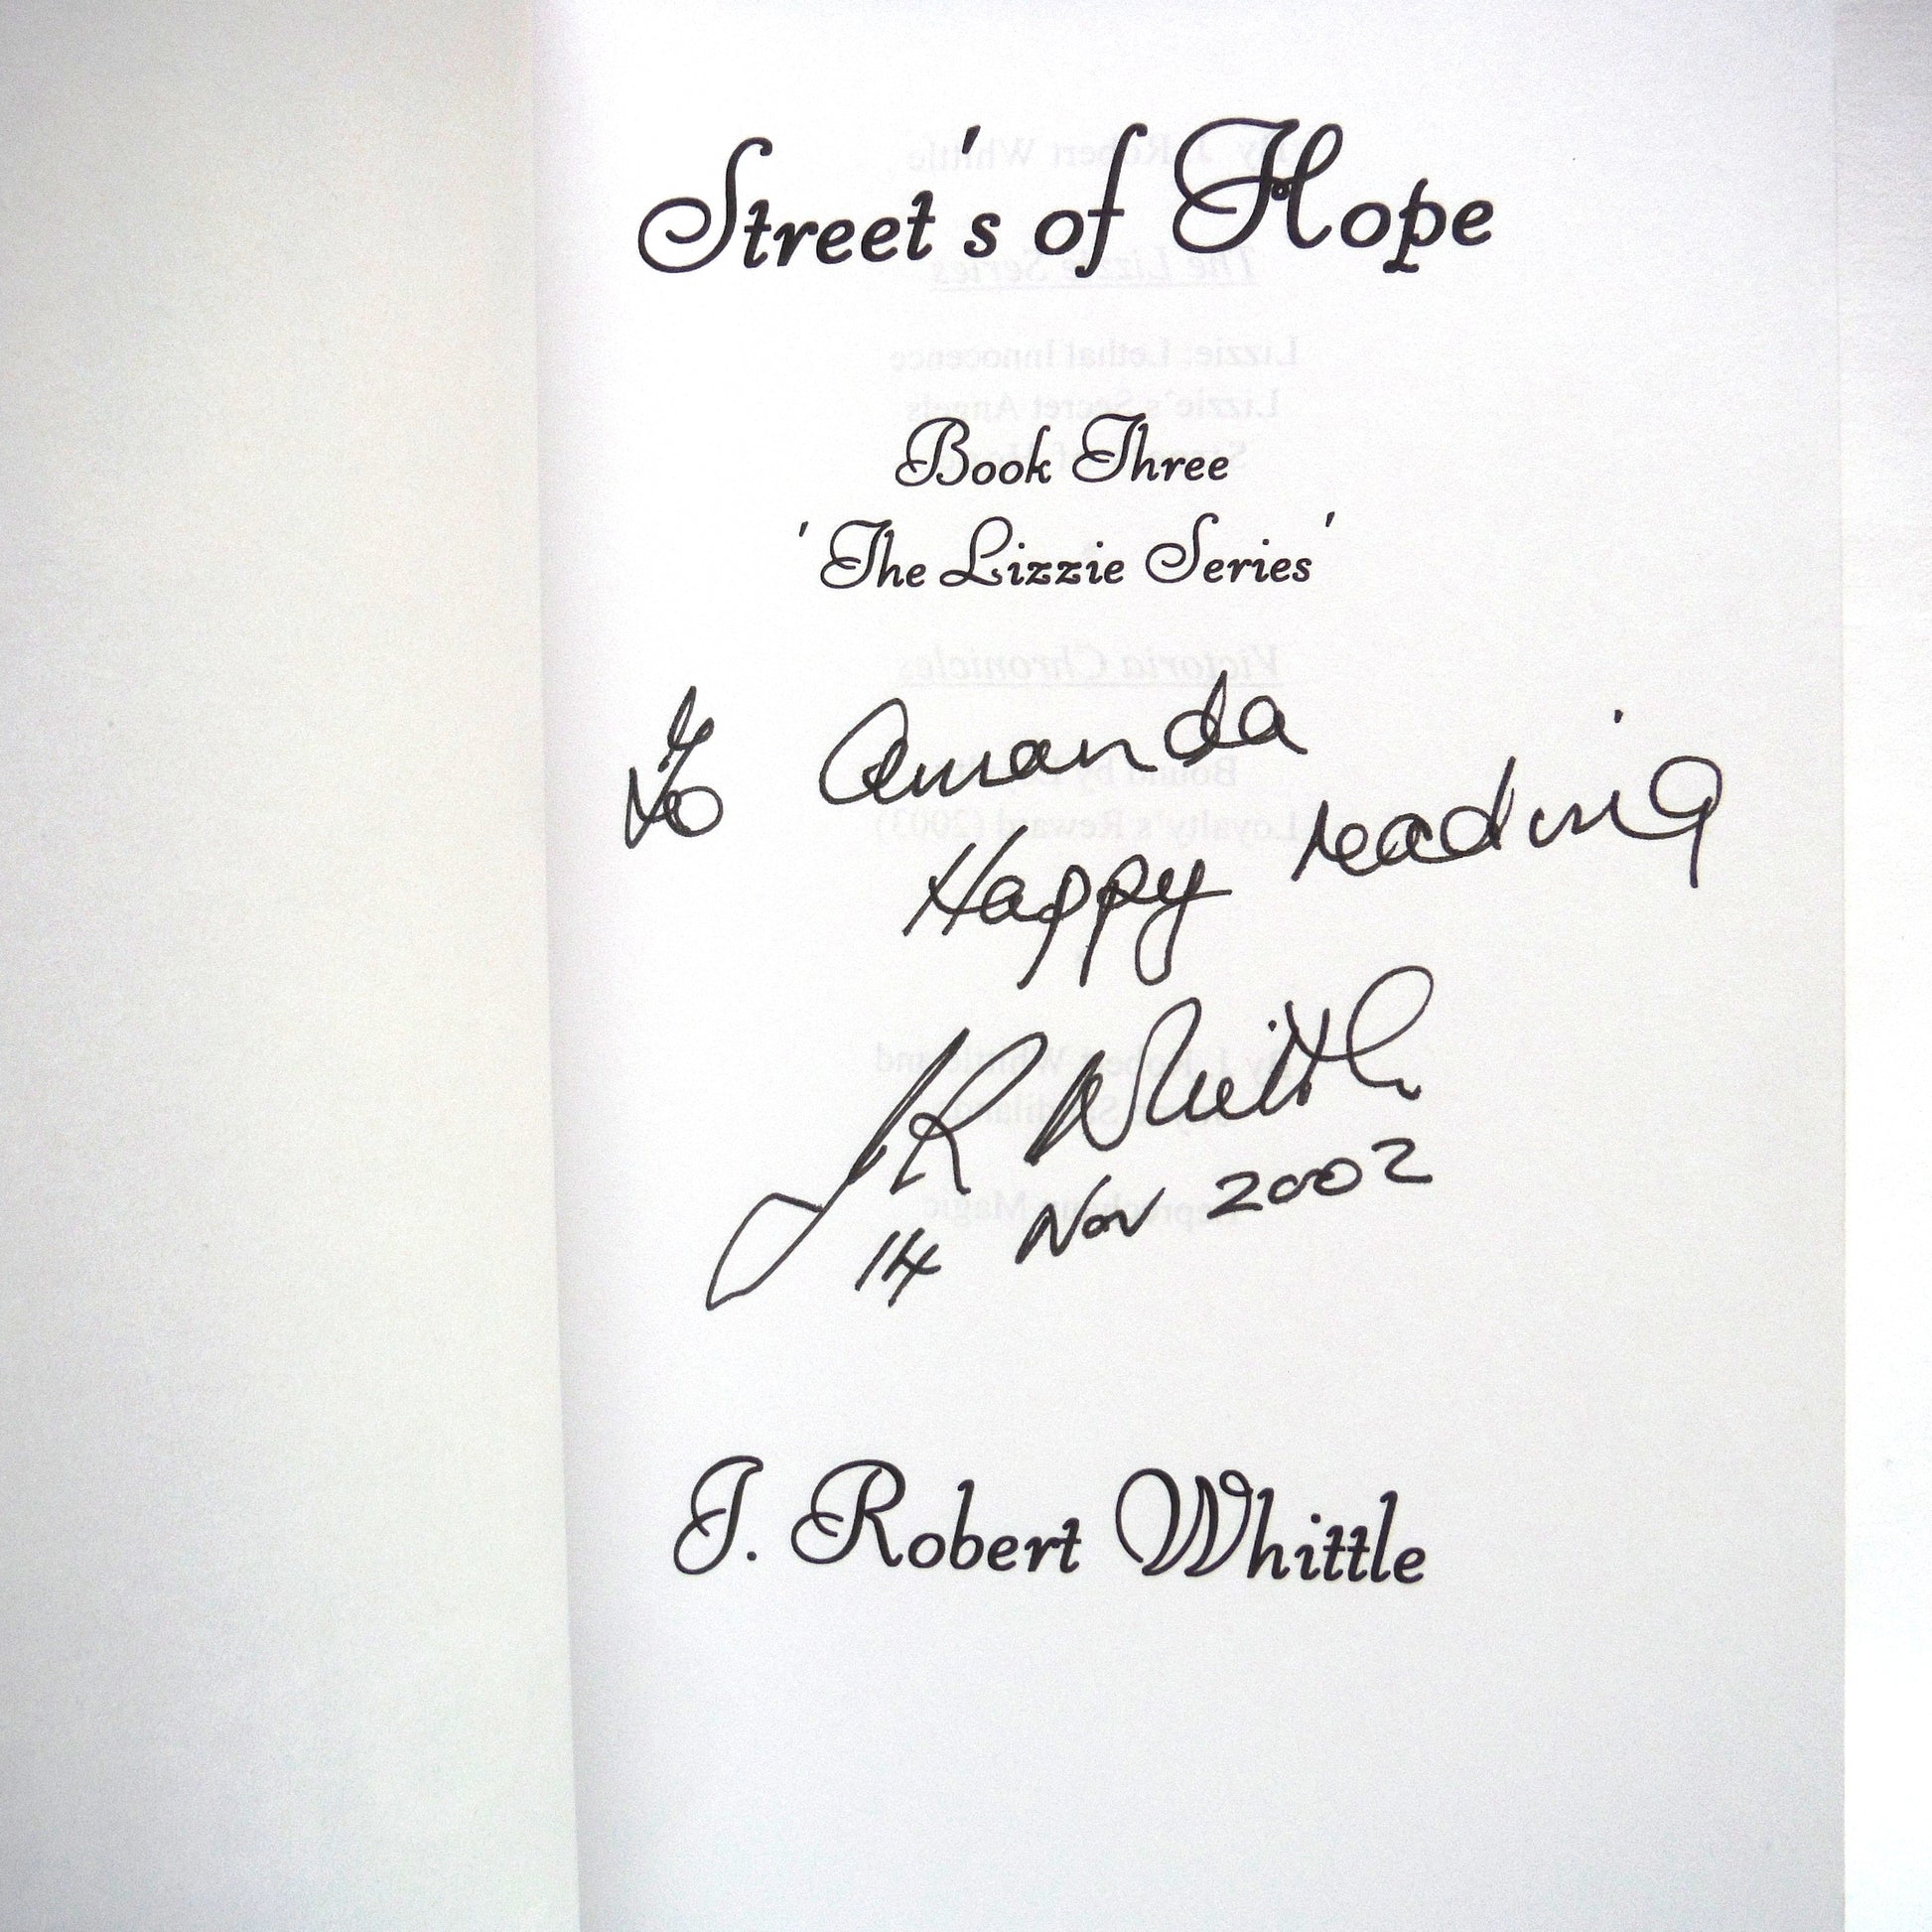 Street's of Hope
Book Three
'The Lizzie Series'
To Amanda
Happy reading
JR Whittle
14 Nov 2002
J. Robert Whittle